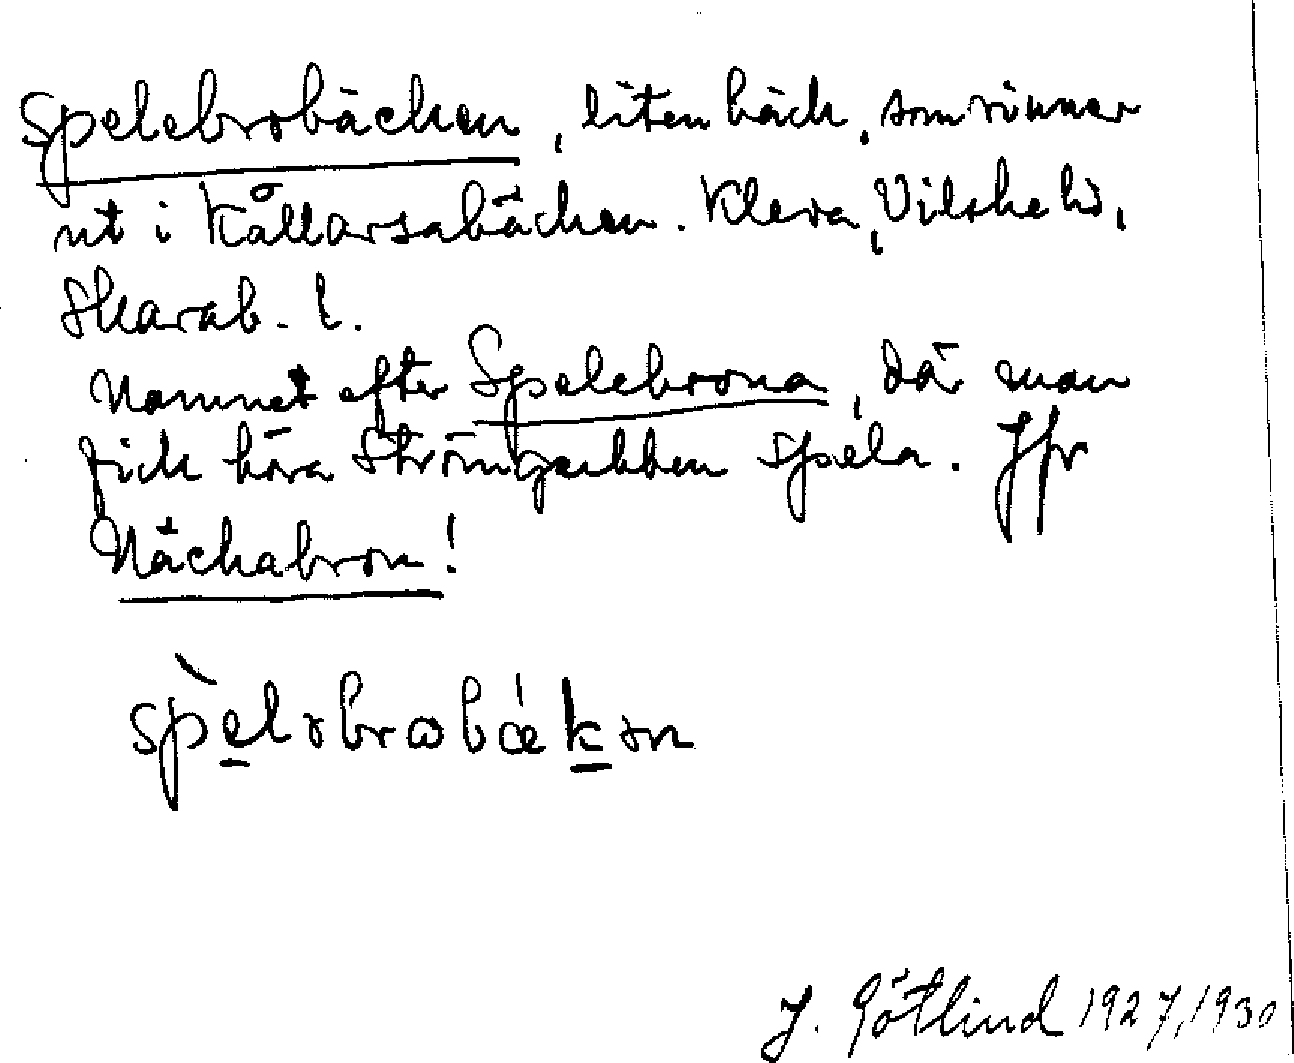 Spelebrobäcken, liten bäck, som rinner
ut i Kållarsabäcken. Kleva, Vilske hd,
Skarab. l.
Namnet efter Spelebrona, där man
fick höra Strömgubben spela. Jfr
Näckabron!
spèləbrωbǽkən
J. Götlind 1927, 1930